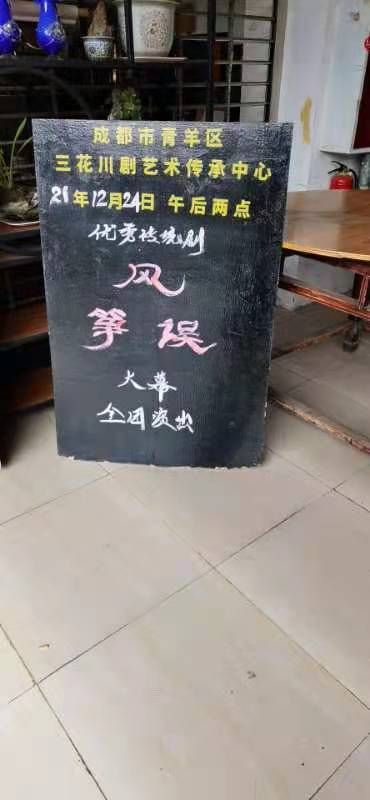 成都市青羊区
三花川剧艺术传承中心
21年12月24日 午后两点
优秀传统剧
风
筝误
大幕
全团演出